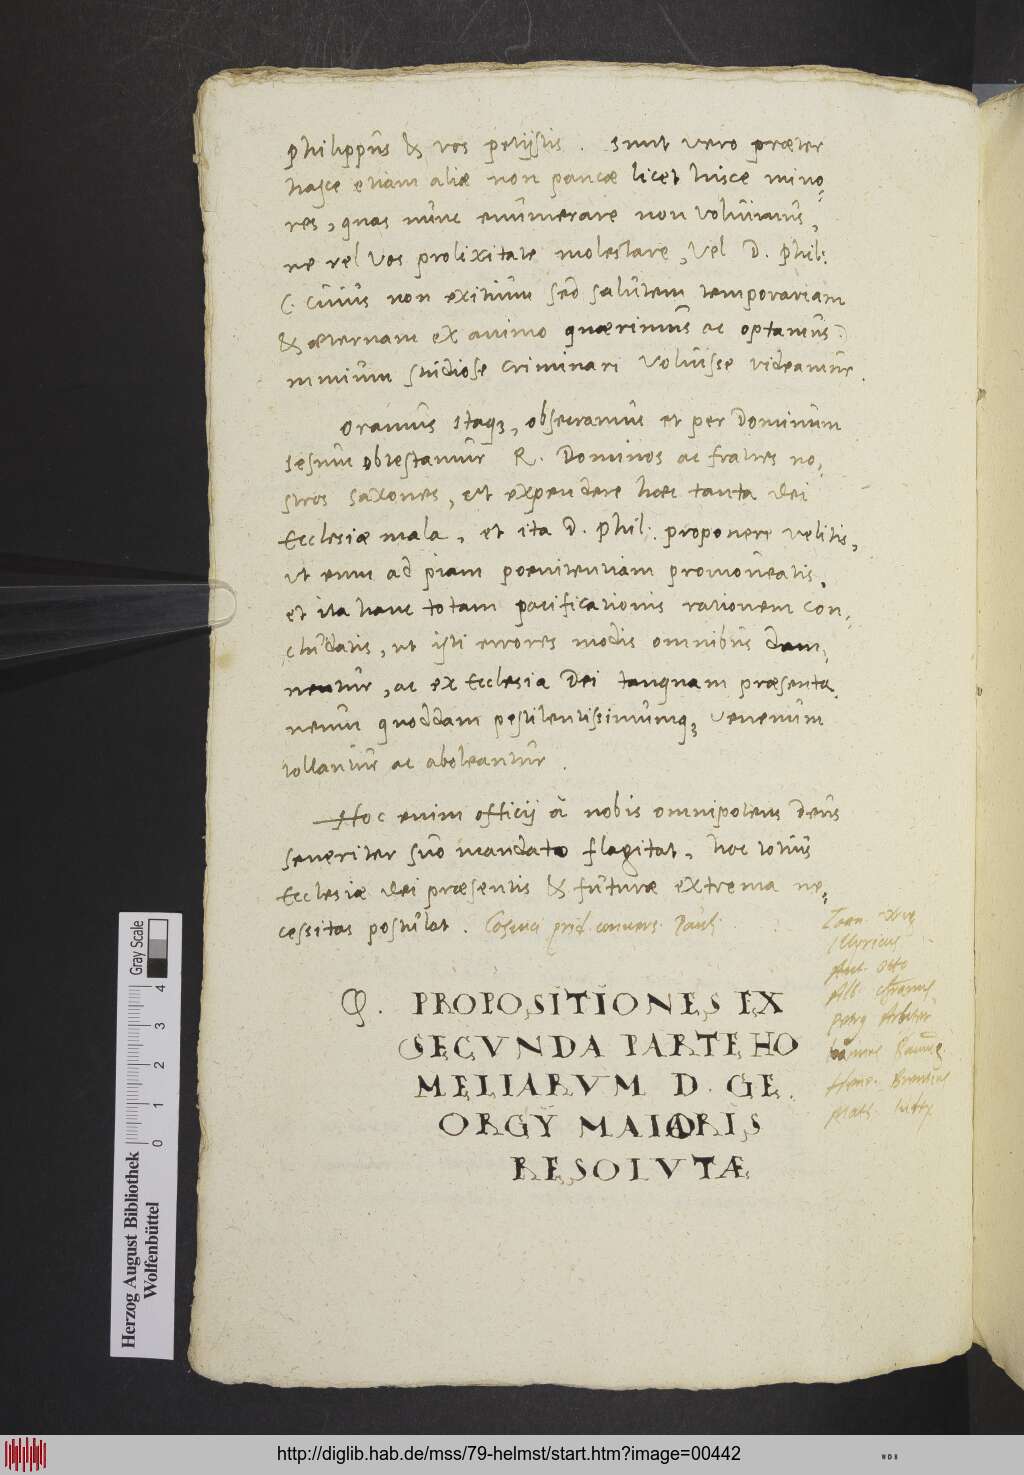 philippus & vos petijstis. Sunt vero præter
hasce etiam aliæ non paucæ licet hisce mino-
res, quas nunc enumerare non voluimus,
ne vel vos prolixitate molestare, vel D. Phil:
(: cuius non exitium sed salutem temporariam
& æternam ex animo quærimus ac optamus :)
nimium studiose criminari voluisse videamur.
Oramus itaq3, obsecramus et per Dominum
Iesum obtestamur R. Dominos ac fratres no-
stros Saxones, ut expendere hæc tanta dei
Ecclesiæ mala, et ita D. Phil: proponere velitis,
ut eum ad piam poenitentiam promoueatis,
et ita hanc totam pacificationis rationem con-
cludatis, ut isti errores modis omnibus dam-
nentur, ac ex Ecclesia Dei tanquam præsenta
neum quoddam pestilentissimumq3 venenum
tollantur ac aboleantur.
Hoc enim officij à nobis omnipotens Deus
seueriter suo mandato flagitat, hoc totius
Ecclesiæ dei præsentis & futuræ extrema ne-
cessitas postulat. Cosuici prid. conuers. Pauli
Illyricus
Ant. Otto
Petrg Arbiter
Q. PROPOSITIONES EX
SECVNDA PARTE HO
MELIARVM D. GE
ORGY MAIORIS
RESOLVTÆ
Herzog August Bibliothek
Wolfenbüttel
Gray Scale
0 1 2 3 4
http://diglib.hab.de/mss/79-helmst/start.htm?image=00442
WDB